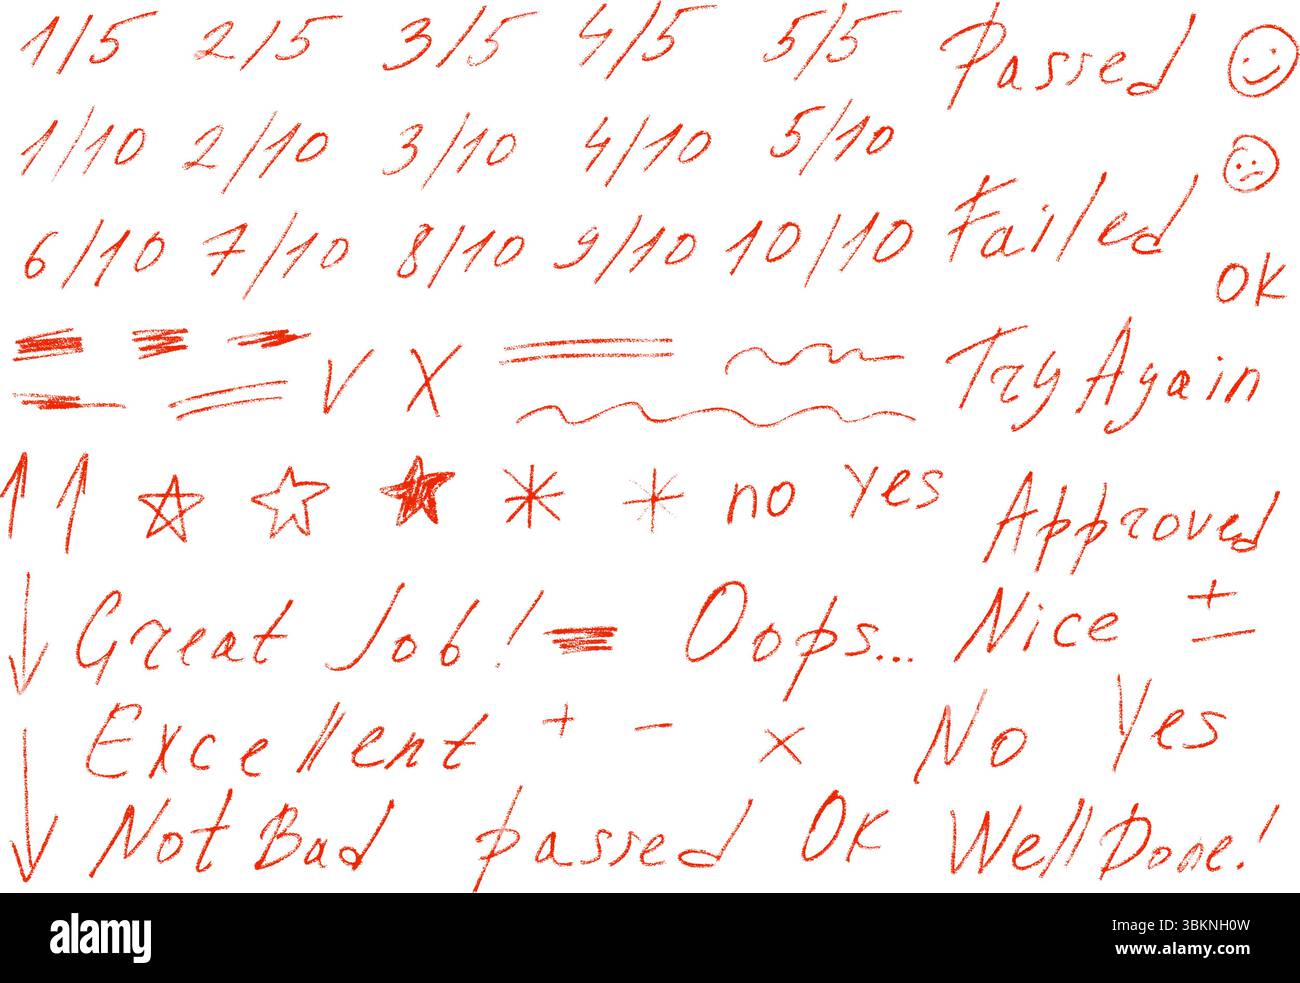 1/5 2/5 3/5 4/5 5/5 Passed
1/10 2/10 3/10 4/10 5/10
6/10 7/10 8/10 9/10 10/10 Failed
OK
V X Try Again
no yes Approved
Great Job! Oops... Nice + −
Excellent + − × No Yes
Not Bad passed OK Well Done!
alamy
Image ID: 3BKNH0W
www.alamy.com